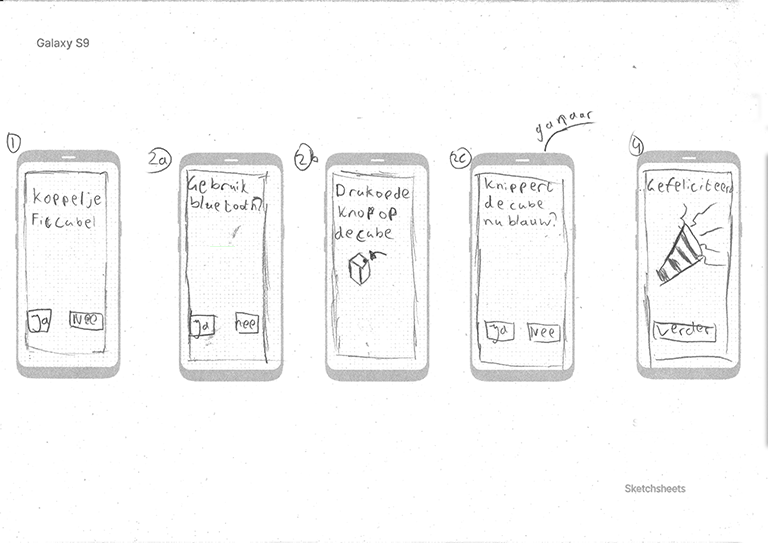 Galaxy S9
1
2a
2b
2c
ga naar
4
Koppel je
Fitcube!
Ja
Nee
Gebruik
bluetooth?
ja
nee
Druk op de
knop op
de cube
Knippert
de cube
nu blauw?
ja
Nee
Gefeliciteerd
verder
Sketchsheets